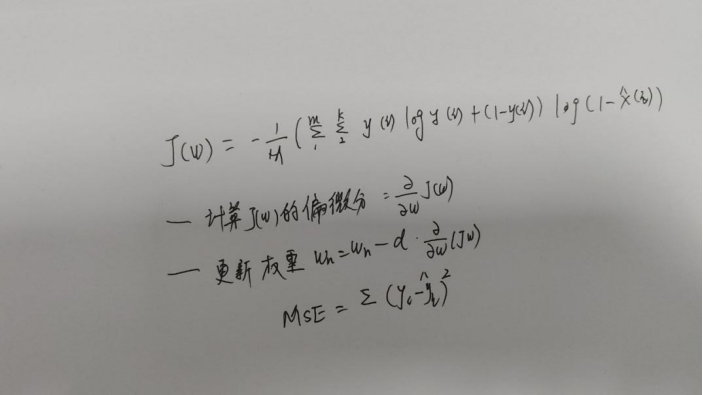 J(w) = -1/m ( m∑1 k∑2 y(i) log y(i) + (1-y(i)) log(1-x̂(i)) )
— 计算J(w)的偏微分 = ∂/∂w J(w)
— 更新权重 wn = wn - d · ∂/∂w (Jw)
MSE = Σ (yi - ŷi)²